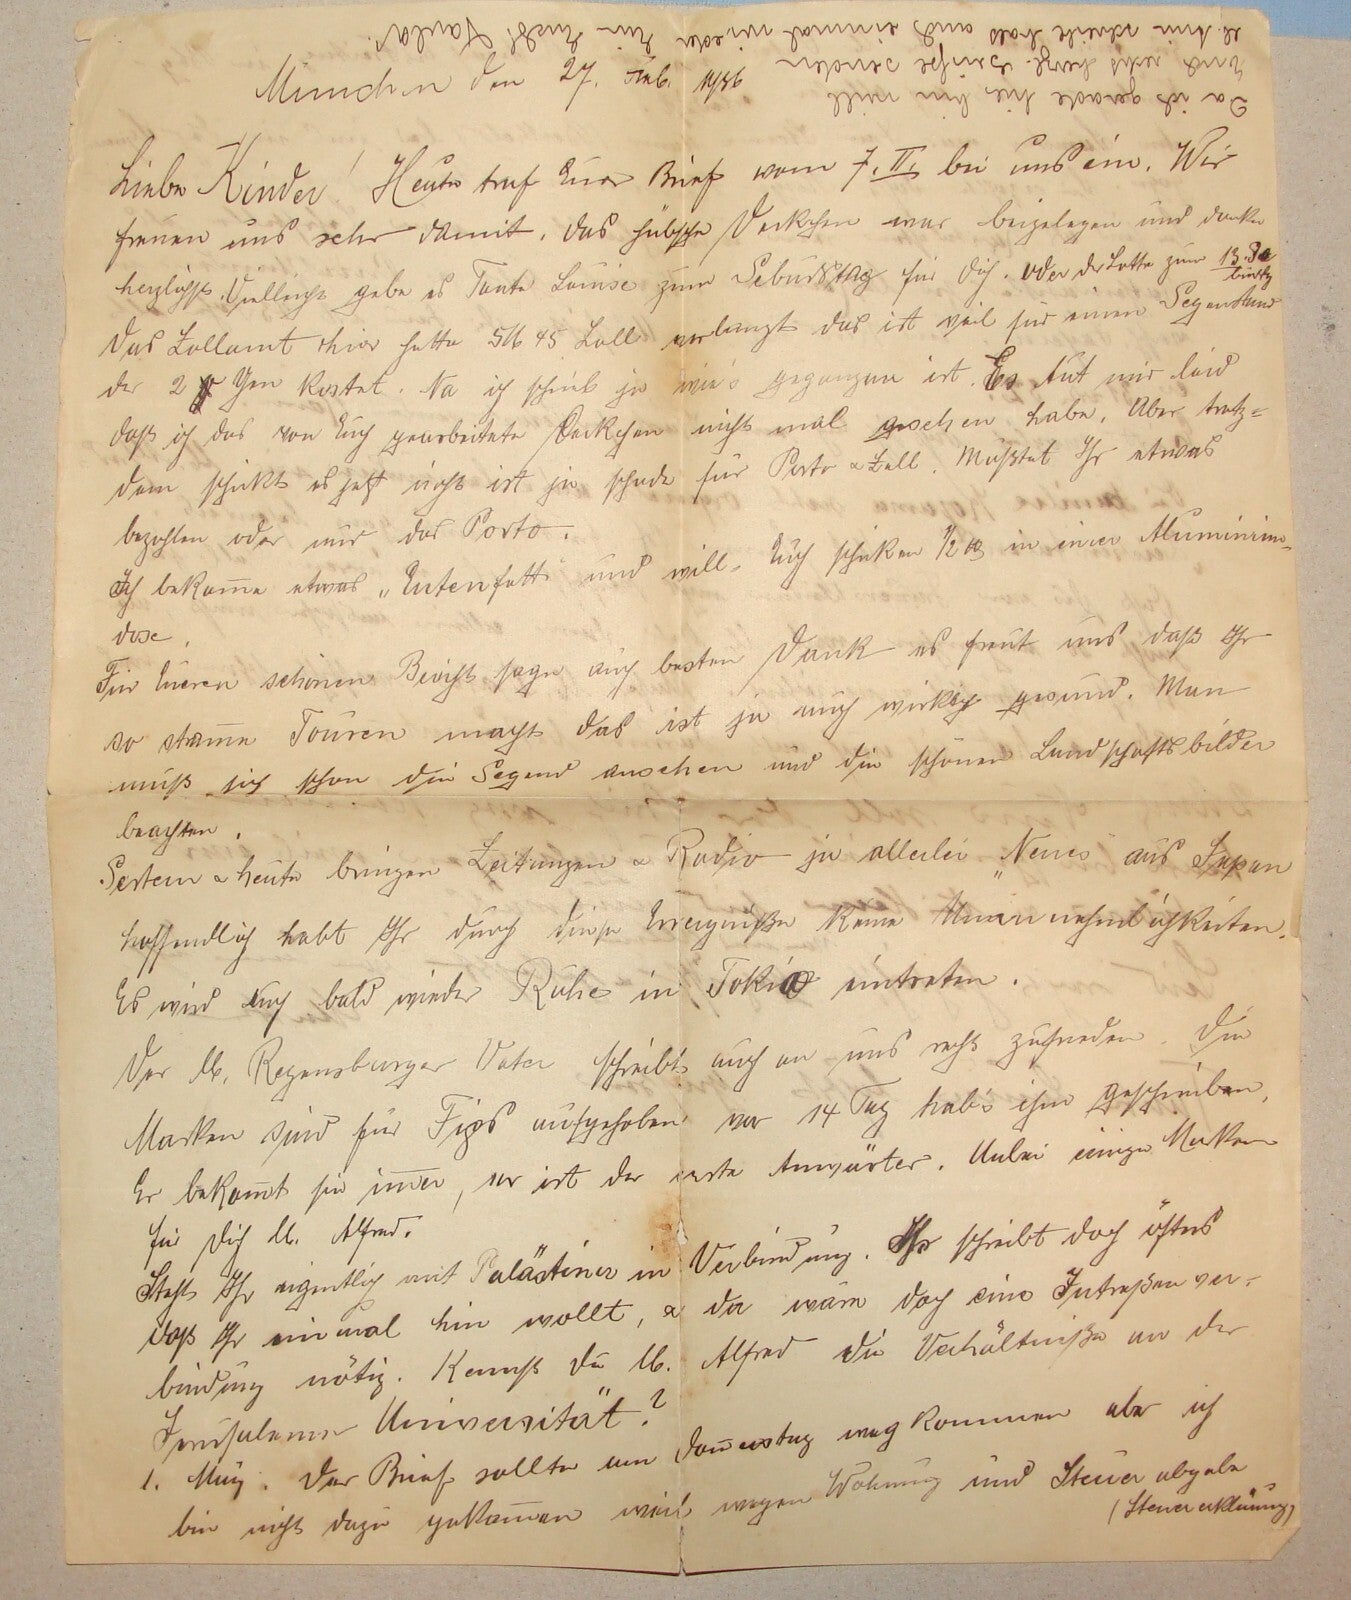 München den 27. Feb. 1936
Liebe Kinder! Heute traf Euer Brief vom 7. II. bei uns ein. Wir
freuen uns sehr damit, das hübsche Deckchen war beigelegen und danke
herzlichst. Vielleicht gebe es Tante Louise zum Geburtstag für Dich. oder der Lotte zum 13.
Das Zollamt hier hatte 5 M 45 Zoll verlangt das ist viel für einen Gegenstand
der 2 Yen kostet. Na ich schrieb ja wie's gegangen ist. Es tut mir leid
daß ich das von Euch gearbeitete Deckchen nicht mal gesehen habe. Aber trotz=
dem schickt es jetzt nicht ist ja schade für Porto & Zoll. Mußtet Ihr etwas
bezahlen oder nur das Porto.
Ich bekomme etwas „Entenfett" und will Euch schicken 1/2 ℔ in einer Aluminium-
dose.
Für Eueren schönen Bericht sage auch besten Dank es freut uns daß Ihr
so stramme Touren macht das ist ja auch wirklich gesund. Man
muß sich schon die Gegend ansehen und die schönen Landschaftsbilder
beachten.
Gestern & heute bringen Zeitungen & Radio ja allerlei „Neues" aus Japan
hoffendlich habt Ihr durch diese Ereigniße keine Unannehmlichkeiten.
Es wird auch bald wieder Ruhe in Tokio eintreten.
Der lb. Regensburger Vater schreibt auch an uns recht zufrieden. Die
Marken sind für Fips aufgehoben vor 14 Tag hab's ihm geschrieben,
Er bekommt sie immer, er ist der erste Anwärter. Anbei einige Marken
für Dich lb. Alfred.
Steht Ihr eigentlich mit Palästiner in Verbindung. Ihr schreibt doch öfters
daß Ihr einmal hin wollt, & da wäre doch eine Intreßenver-
bindung nötig. Kennst Du lb. Alfred die Verhältniße an der
Jerusalemer Universität?
1. März. Der Brief sollte am Donnerstag weg kommen aber ich
bin nicht dazu gekommen weil wegen Wohnung und Steuer abgabe
(Steuererklärung)
Da ich gerade hier bin will
Euch recht herzl. Grüße senden